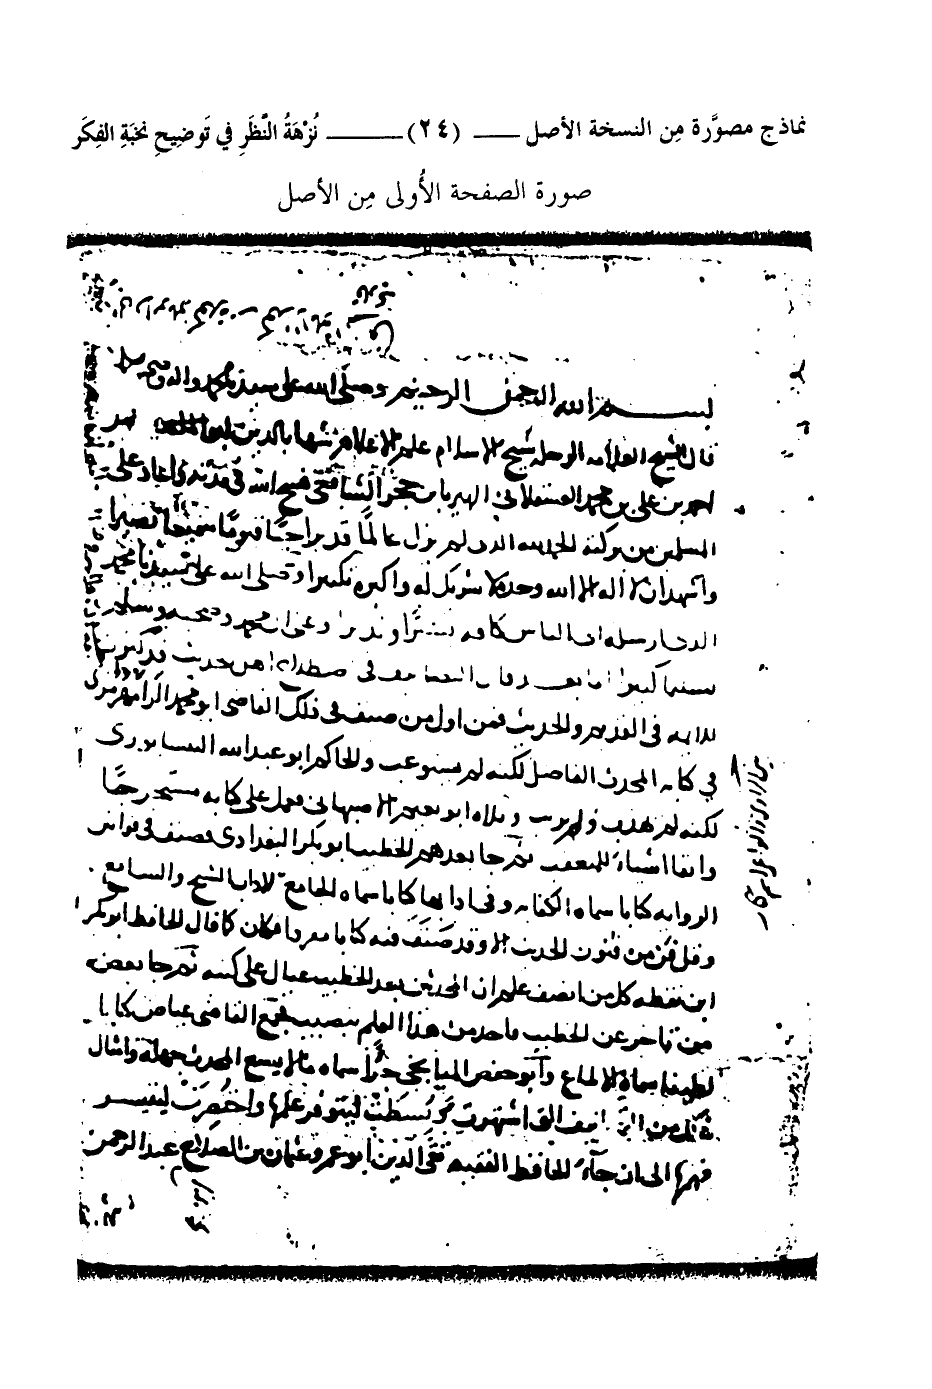 نماذج مصوَّرة مِن النسخة الأصل ــــــ (٢٤) ــــــ نُزْهَةُ النَّظَرِ في تَوضِيحِ نُخبَةِ الفِكَر
صورة الصفحة الأُولى مِن الأصل
بســـم الله الرحمن الرحيم وصلى الله على سيدنا محمد واله وصحبه
قال الشيخ العلامه الرحله شيخ الاسلام علم الاعلام شهاب الدين
احمد بن على بن محمد العسقلانى الشهير بابن حجر الشافعى فسح الله فى مدته واعاد على
المسلمين من بركته الحمد لله الذى لم يزل عالما قديرا حيا قيوما سميعا بصيرا
واشهد ان لا اله الا الله وحده لا شريك له واكبره تكبيرا وصلى الله على سيدنا محمد
الذى ارسله الى الناس كافه بشيرا ونذيرا وعلى ال محمد وصحبه وسلم
تسليما كثيرا اما بعد فان التصانيف فى اصطلاح اهل حديث قد كثرت
للايمه فى القديم والحديث فمن اول من صنف فى ذلك القاضى ابو محمد الرامهرمزى
فى كتابه المحدث الفاصل لكنه لم يستوعب والحاكم ابو عبد الله النيسابورى
لكنه لم يهذب ولم يرتب وتلاه ابو نعيم الاصبهانى فعمل على كتابه مستخرجا
وابقا اشياء للمتعقب ثم جا بعدهم الخطيب ابو بكر البغدادى فصنف فى قوانين
الروايه كتابا سماه الكفايه وفى ادابها كتابا سماه الجامع لاداب الشيخ والسامع
وقل فن من فنون الحديث الا وقد صنف فيه كتابا مفردا فكان كما قال الحافظ ابو بكر
ابن نقطه كل من انصف علم ان المحدثين بعد الخطيب عيال على كتبه ثم جا بعض
من تاخر عن الخطيب فاخذ من هذا العلم بنصيب فجمع القاضى عياض كتابا
لطيفا سماه الالماع وابو حفص الميانجى جزأ سماه ما لا يسع المحدث جهله وامثال
ذلك من التصانيف التى اشتهرت وبسطت ليتوفر علمها واختصرت ليتيسر
فهمها الى ان جآء الحافظ الفقيه تقى الدين ابو عمرو عثمان بن الصلاح عبد الرحمن